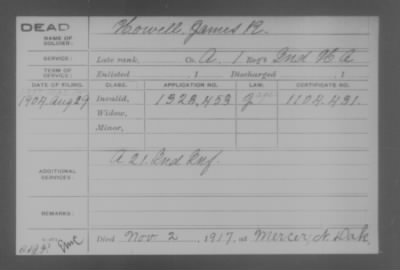 DEAD
NAME OF SOLDIER:
Howell, James R.
SERVICE:
Late rank, Co. A. 1 Reg't Ind H A
TERM OF SERVICE:
Enlisted , 1 Discharged , 1
DATE OF FILING. CLASS. APPLICATION NO. LAW. CERTIFICATE NO.
1904 Aug 29 Invalid, 1323,453 1104,431.
Widow,
Minor,
ADDITIONAL SERVICES:
A 21. Ind Inf.
REMARKS:
Died Nov 2, 1917, at Mercer, N. Dak.